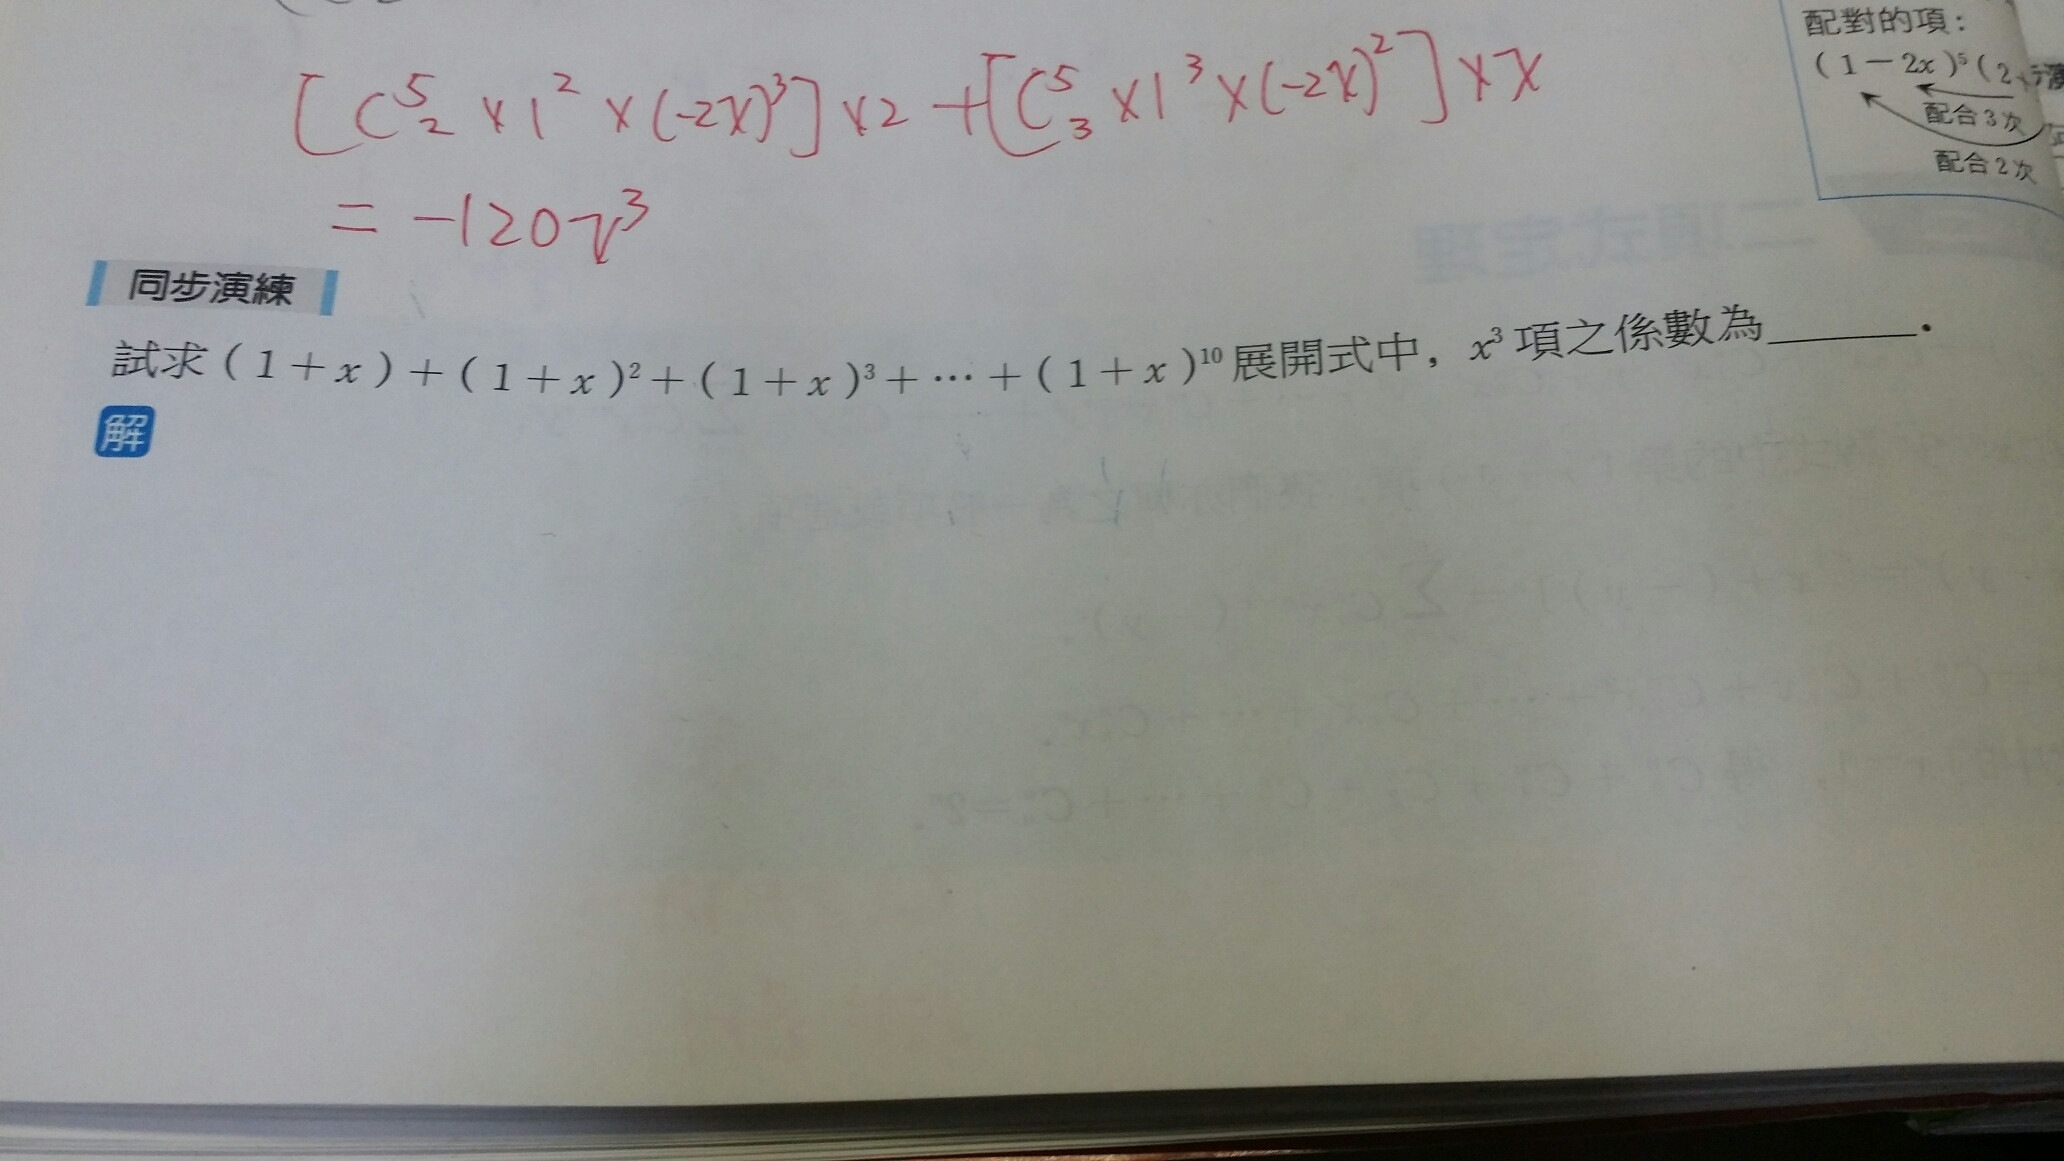 [C⁵₂ × 1² × (-2x)³] × 2 + [C⁵₃ × 1³ × (-2x)²] × x
= -120x³
配對的項：
(1－2x)⁵(2
配合3次
配合2次
同步演練
試求(1+x)+(1+x)²+(1+x)³+⋯+(1+x)¹⁰展開式中，x³項之係數為______．
解